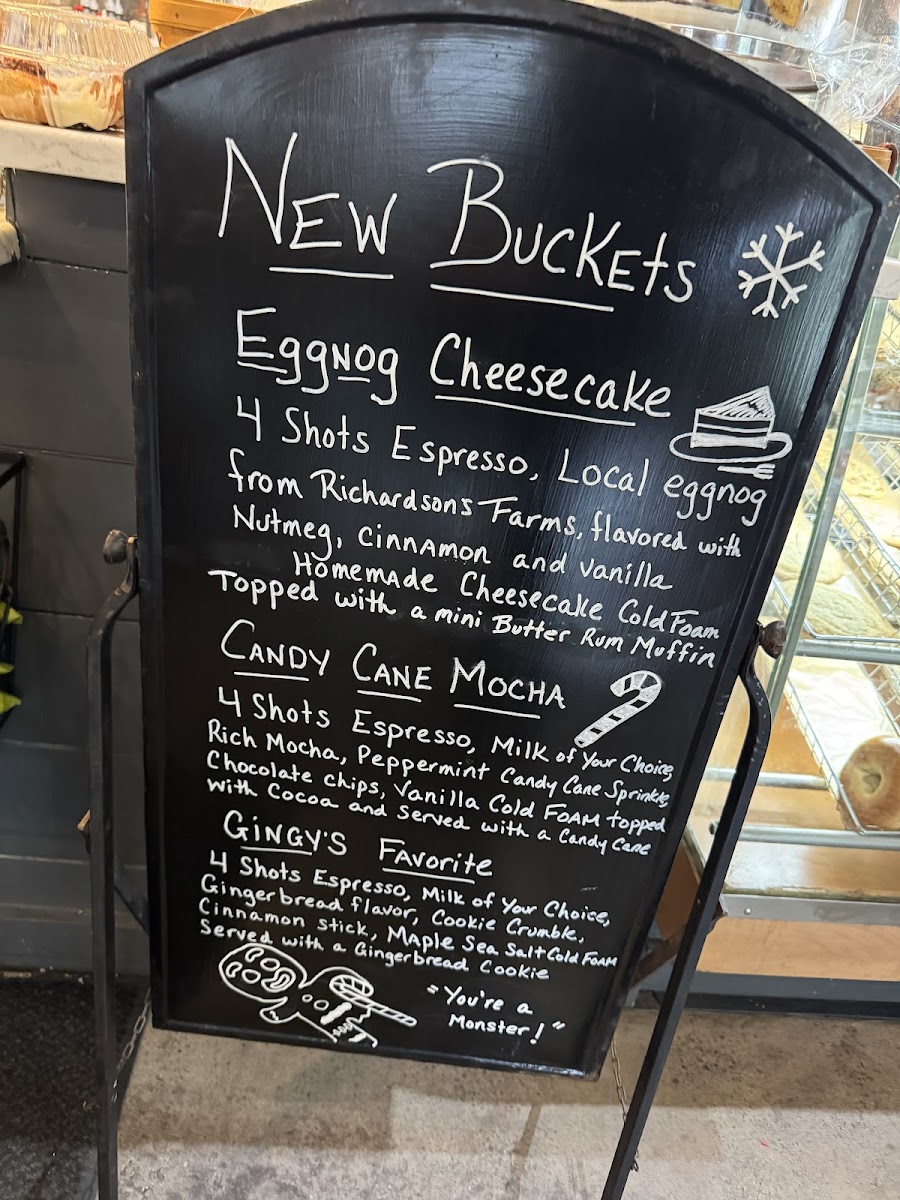 New Buckets
Eggnog Cheesecake
4 Shots Espresso, Local eggnog
from Richardsons Farms, flavored with
Nutmeg, cinnamon and vanilla
Homemade Cheesecake Cold Foam
Topped with a mini Butter Rum Muffin
Candy Cane Mocha
4 Shots Espresso, Milk of Your Choice,
Rich Mocha, Peppermint Candy Cane Sprinkle,
Chocolate chips, Vanilla Cold Foam topped
with Cocoa and Served with a Candy Cane
Gingy's Favorite
4 Shots Espresso, Milk of Your Choice,
Gingerbread flavor, Cookie Crumble,
Cinnamon stick, Maple Sea Salt Cold Foam
Served with a Gingerbread Cookie
"You're a
Monster!"